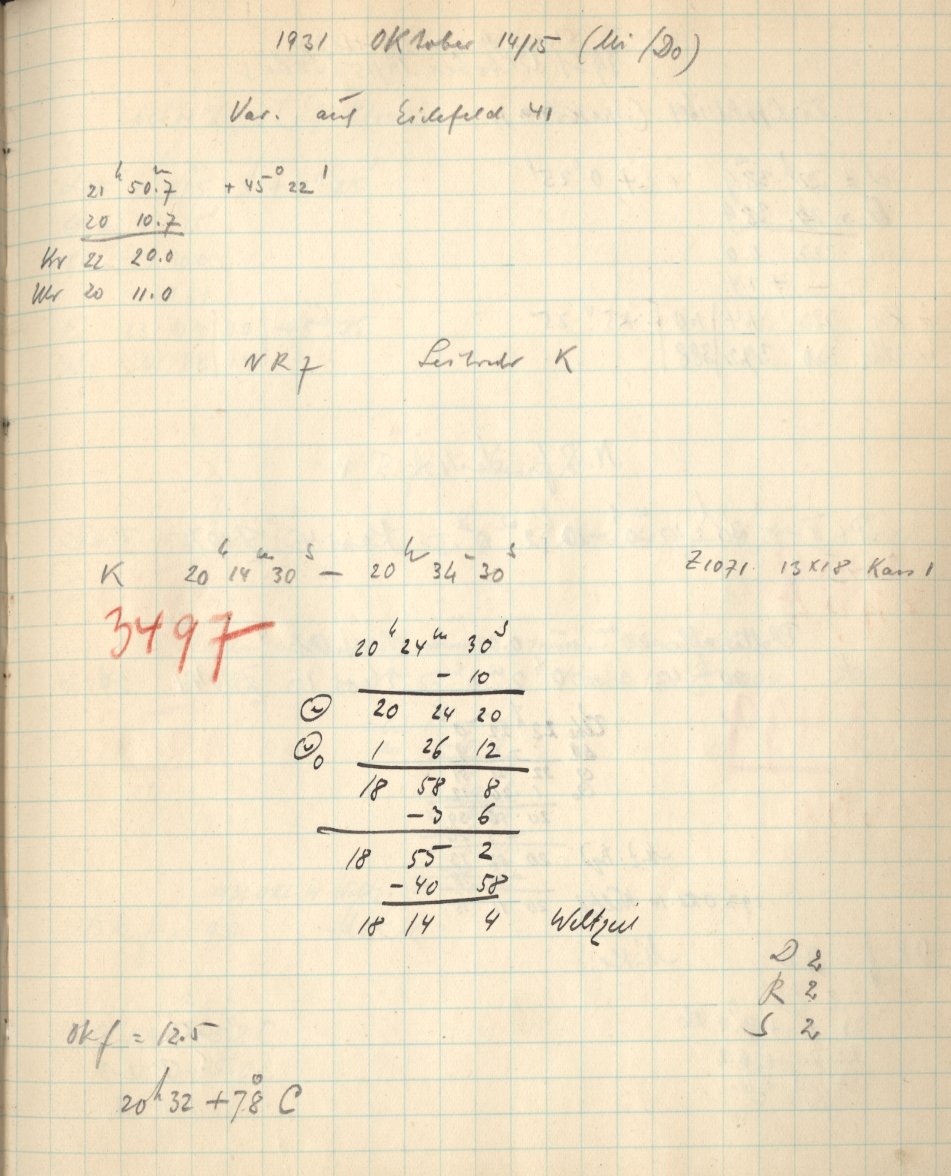 1931 Oktober 14/15 (Mi/Do)
Var. auf Eichfeld 41
21ʰ 50.ᵐ7 + 45° 22'
20 10.7
Kr 22 20.0
Uhr 20 11.0
NR 7 Leitrohr K
K 20ʰ 14ᵐ 30ˢ — 20ʰ 34ᵐ 30ˢ Z1071. 13x18 Kass 1
3497
20ʰ 24ᵐ 30ˢ
- 10
20 24 20
1 26 12
18 58 8
- 3 6
18 55 2
- 40 58
18 14 4 Weltzeit
D 2
R 2
S 2
Okf = 12.5
20ʰ32 + 7.°8 C